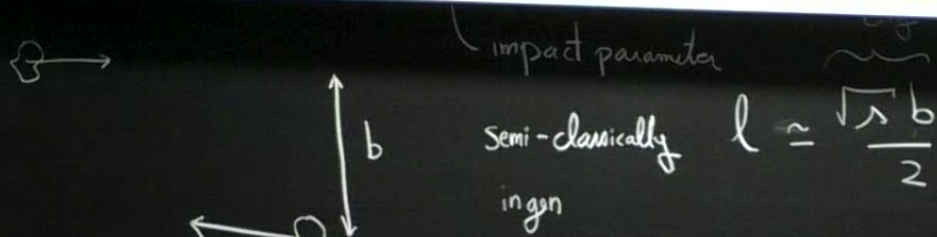 impact parameter
b
semi-classically l ≃ √s b / 2
in gen